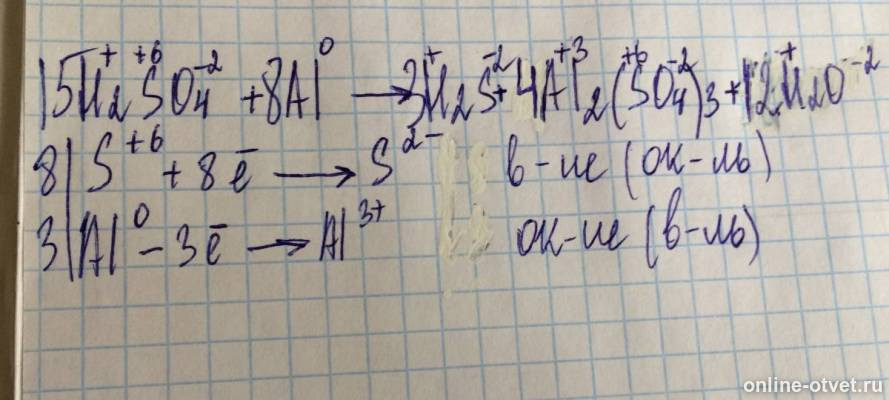 15H₂⁺S⁺⁶O₄⁻² + 8Al⁰ → 3H₂⁺S⁻² + 4Al₂⁺³(S⁺⁶O₄⁻²)₃ + 12H₂⁺O⁻²
8| S⁺⁶ + 8ē → S²⁻ в-ие (ок-ль)
3| Al⁰ - 3ē → Al³⁺ ок-ие (в-ль)
online-otvet.ru